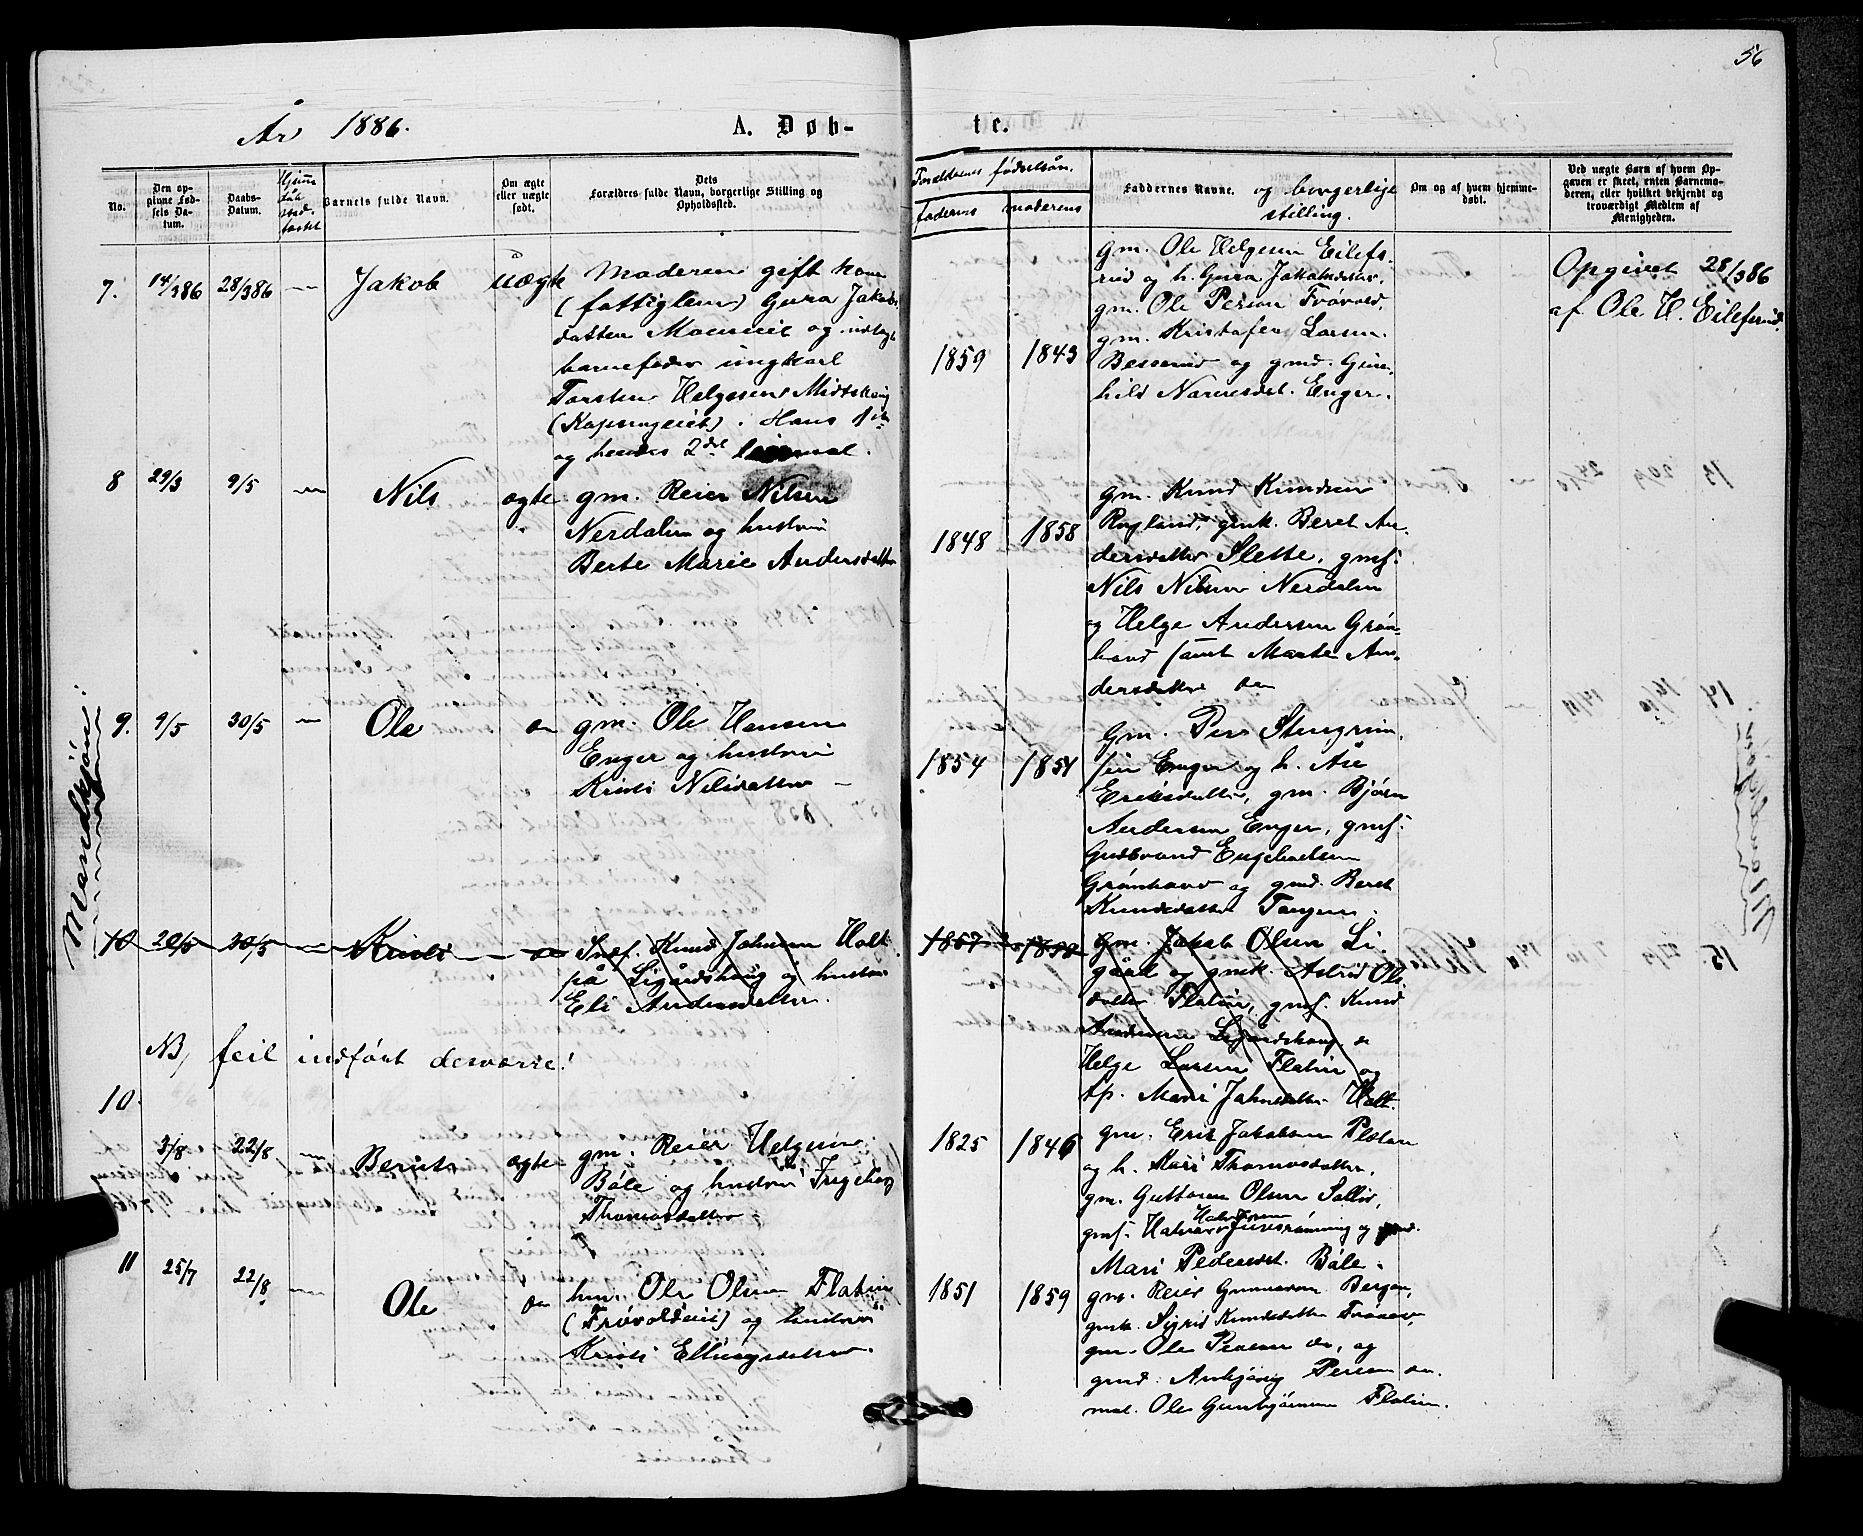 56
År 1886.
A. Døb-
te.
No.
Den op-
givne Fød-
sels Da-
tum.
Daabs-
Datum.
Barnets fulde Navn.
Om ægte
eller uægte
født.
Dets
Forældres fulde Navn, borgerlige Stilling og
Opholdssted.
Forældrenes fødselsår.
faderens moderens
Faddernes Navne. og borgerlige
stilling.
Om og af hvem hjemme-
døbt.
Ved uægte Børn af hvem Op-
gaven er skeet, enten Barnemo-
deren, eller hvilket bekjendt og
troværdigt Medlem af
Menigheden.
Mandkjøn:
7. 14/386 28/386 — Jakob uægte
Moderen gift kone
(fattiglem) Gura Jakobs
datter Moen og udlagt
barnefader ungkarl
Torsten Helgesen
Hans 1ste
og hendes 2det leiermål.
1859 1843
gm. Ole Helgesen Eilefs-
rud og h. Gura Jakobsdtr.
gm. Ole Person Frøvold,
gm. Kristofer Larsen
Besserud og gmd. Gun-
hild Narvesdat. Enger.
Opgivet 28/386
af Ole H. Eilefsrud.
8 29/3 9/5 — Nils ægte
gm. Reier Nilsen
Nerdalen og hustru
Berte Marie Andersdatter
1848 1858
gm. Knud Knudsen
Rogland, gmk. Beret An-
dersdatter Slette, gmf.
Nils Nilsen Nerdalen
og Helge Andersen Grøn-
hovd samt Marte An-
dersdatter do
9. 9/5 30/5 — Ole do
gm. Ole Hansen
Enger og hustru
Kristi Nilsdatter —
1854 1854
gm. Per Stengrim-
sen Enger og h. Åse
Eriksdatter, gm. Bjørn
Andersen Enger, gmf.
Gudbrand Engebretsen
Grønhovd og gmd. Beret
Knudsdatter Tangen.
10 20/5 30/5 — Kristi — do
Inf. Knud Johnsen Holt
på Ligårdshaug og hustru
Eli Andersdatter.
1857 1858
gm. Jakob Olsen Li-
gård og gmk. Astrid Ols
datter Flatin, gmf. Knud
Andersen Ligårdshaug do
Helge Larsen Flatin og
tp. Mari Johnsdatter Holt.
NB, feil indført desværre!
10.
3/8 22/8 — Berit ægte
gm. Reier Helgesen
Bøle og hustru Ingeborg
Thomasdatter
1825 1846
gm. Erik Jakobsen Plotan
og h. Kari Thomasdatter,
gm. Guttorm Olsen Sollid,
gmf. Halvor og gmd.
Mari Pedersdat. Bøle.
11 25/7 22/8 — Ole do
hm. Ole Olsen Flatin
(Frøvoldseie) og hustru
Kristi Ellingsdatter.
1851 1859
gm. Reier Gunnarson Bergan,
gmk. Sigrid Knudsdatter
gm. Ole Person do, og
gmd. Anbjørg Persen do.
Ole Gunbjørnsen Flatin.